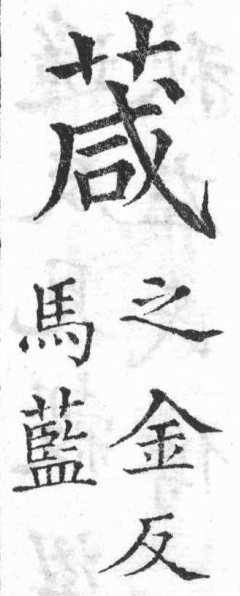 葴
之金反
馬藍